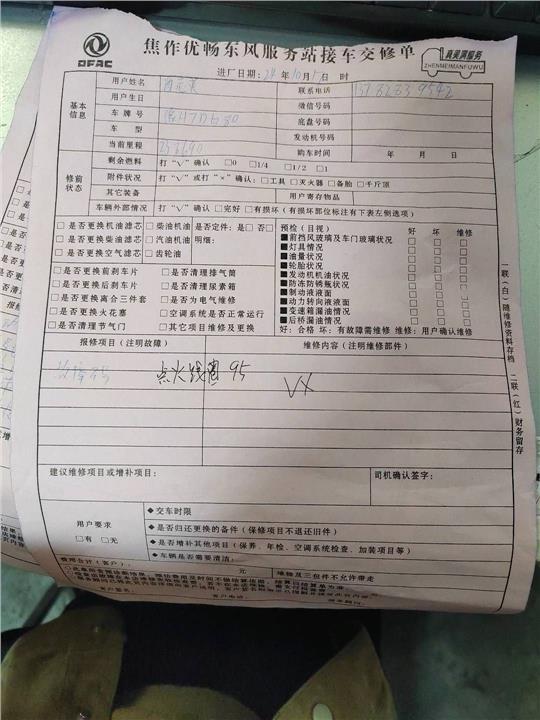 DFAC
焦作优畅东风服务站接车交修单
真美满服务
ZHENMEIMANFUWU
进厂日期:24年10月5日 时
基本信息
用户姓名 联系电话
用户生日 微信号码
车牌号 底盘号码
车型 发动机号码
当前里程 购车时间 年 月 日
修前状态
剩余燃料 打“√”确认 □0 □1/4 □1/2 □1
附件状况 打“√”或打“×”确认:□工具 □灭火器 □备胎 □千斤顶
其它装备 用户寄存物品
车辆外部情况 打“√”确认 □完好 □有损坏(有损坏部位标注有下表左侧选项)
□是否更换机油滤芯 □柴油机油 是否定件:□是 □否
□是否更换柴油滤芯 □汽油机油 明细:
□是否更换空气滤芯 □齿轮油
□是否更换前刹车片 □是否清理排气筒
□是否更换后刹车片 □是否清理尿素箱
□是否更换离合三件套 □是否为电气维修
□是否更换火花塞 □空调系统是否正常运行
□是否清理节气门 □其它项目维修及更换
预检(目视) 好 坏 维修
■前挡风玻璃及车门玻璃状况 □ □ □
■灯具情况 □ □ □
■油量状况 □ □ □
■轮胎状况 □ □ □
■发动机机油状况 □ □ □
■防冻防锈瓶状况 □ □ □
■制动液液面 □ □ □
■动力转向液液面 □ □ □
■变速箱漏油情况 □ □ □
■后桥漏油情况 □ □ □
好:合格 坏:有故障需维修 维修:用户确认维修
报修项目(注明故障) 维修内容(注明维修部件)
点火线圈 95
VX
建议维修项目或增补项目: 司机确认签字:
用户要求
□有 □无
◆交车时限
◆是否归还更换的备件(保修项目不退还旧件)
◆是否增补其他项目(保养、年检、空调系统检查、加装项目等)
◆车辆是否需要清洁:
费用合计(客户): 元 赠物及三包件不允许带走
客户签名: 客户电话:
一联(白)随维修资料存档 二联(红)财务留存